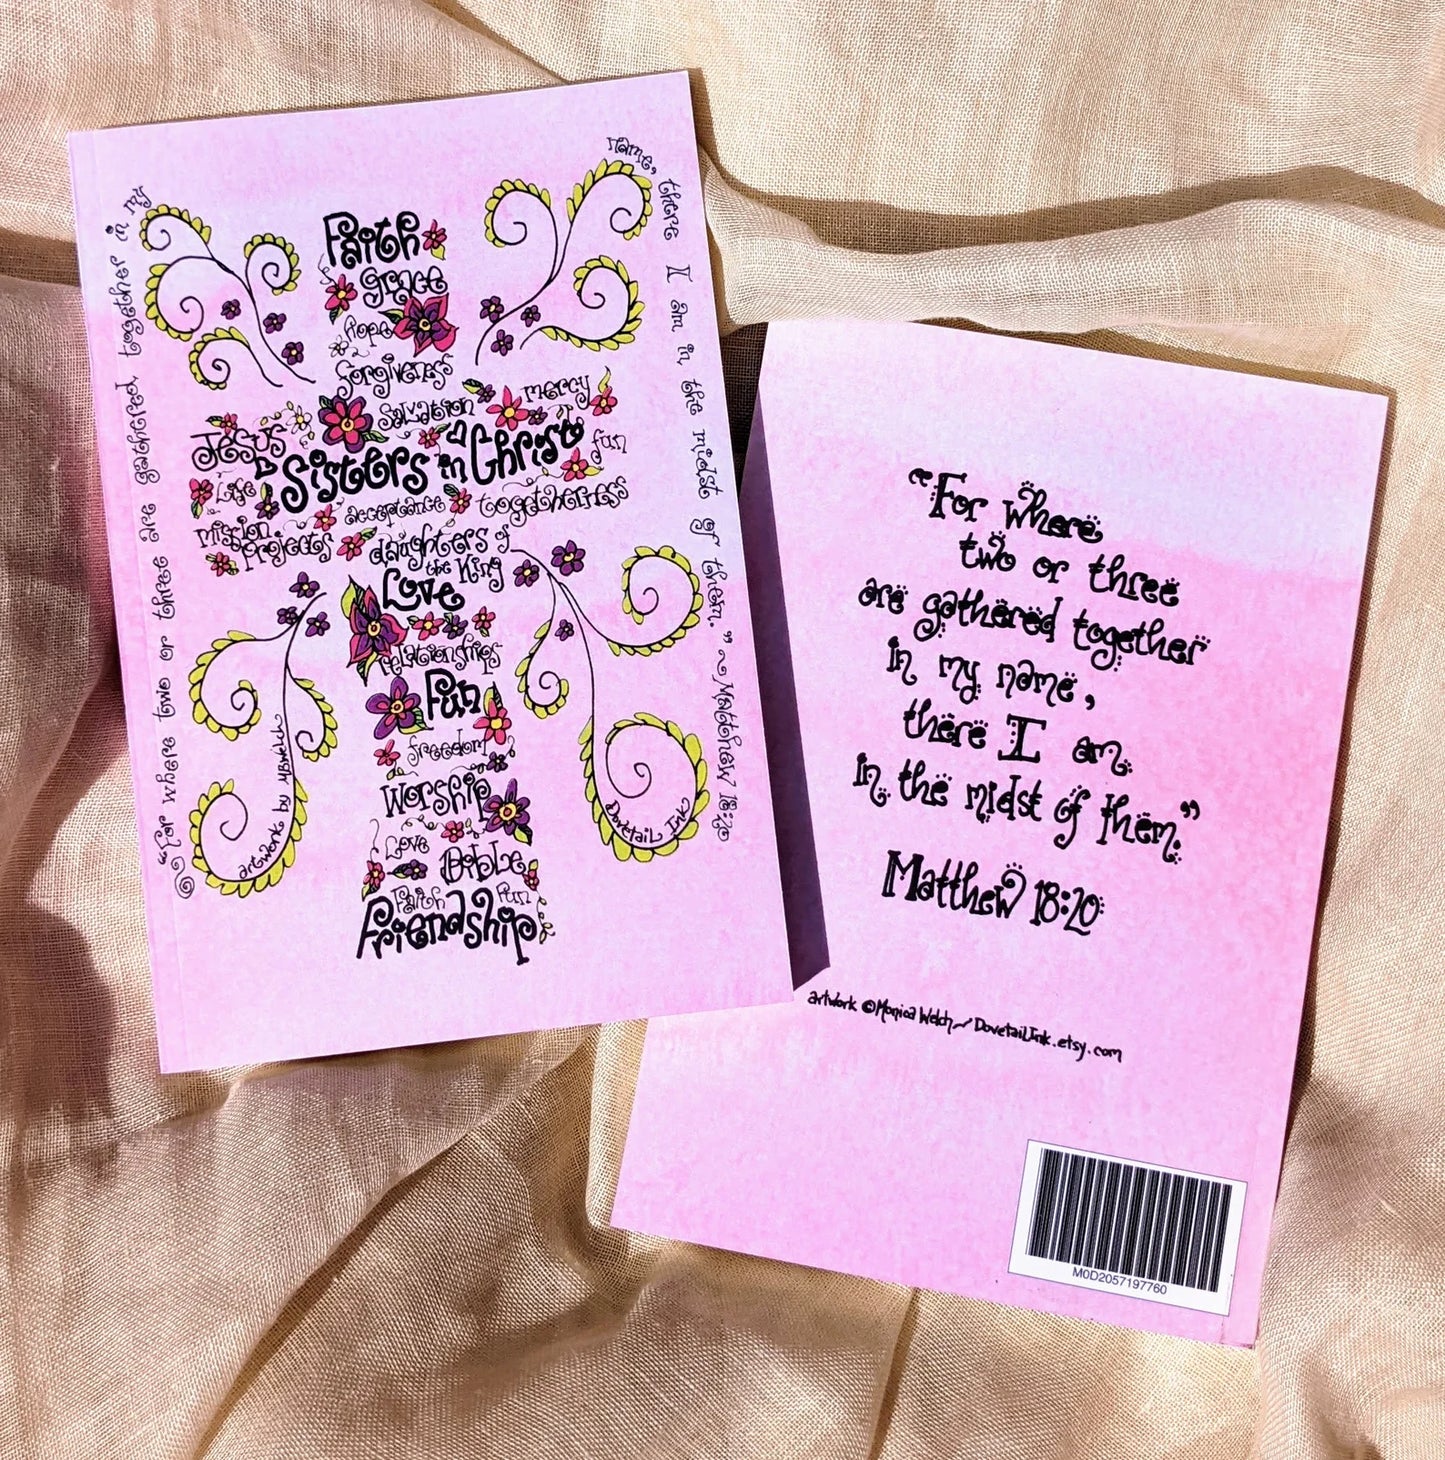 "For where two or three are gathered together in my
name, there I am in the midst of them." ~ Matthew 18:20
Faith
grace
hope
forgiveness
salvation mercy
Jesus
Sisters in Christ fun
Life
acceptance togetherness
mission
projects
daughters of
the King
Love
relationships
Fun
freedom
Worship
Love Bible
Faith Fun
Friendship
artwork by MBWelch
Dovetail Ink
"For where
two or three
are gathered together
in my name,
there I am
in the midst of them."
Matthew 18:20
artwork ©Monica Welch~DovetailInk.etsy.com
M0D2057197760